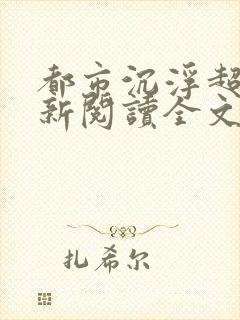 都市沉浮超
新閱讀全文
扎希尔